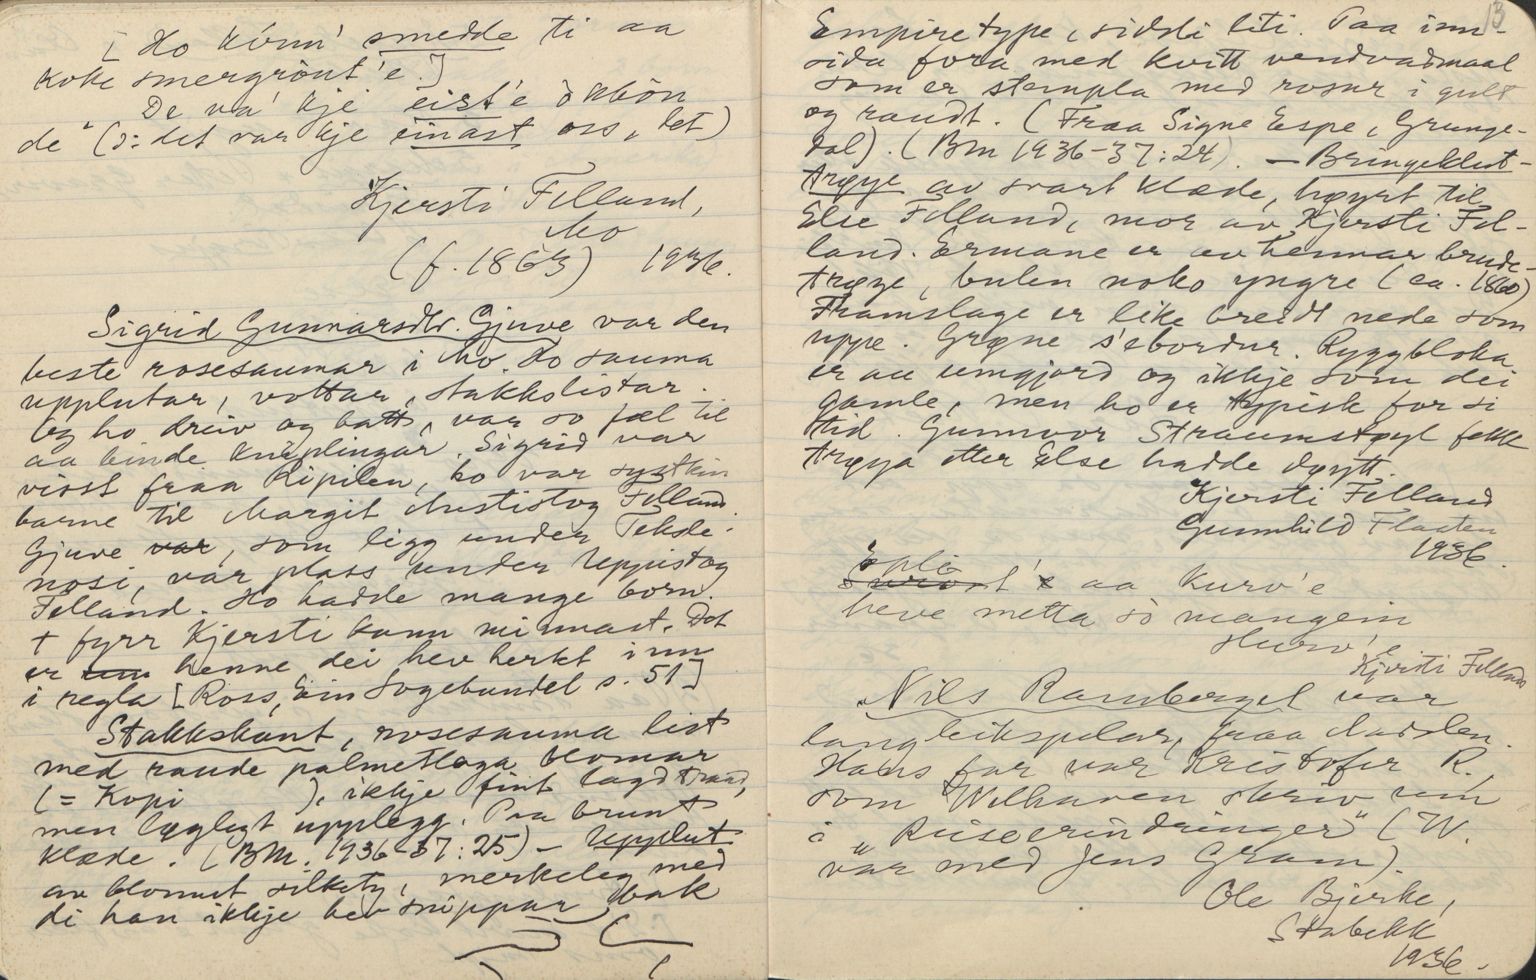 [ Ho kúnn' smedde ti aa
koke smergröut'e.]
De va' kje eist'e
de" (ɔ: det var kje einast oss, let)
Kjersti Felland,
Mo
(f. 1863) 1936.
Sigrid Gunnarsdtr. Gjuve var den
beste rosesaumar i Mo. Ho sauma
upplutar, vottar, stakkslistar.
Og ho dreiv og batt, var so fæl til
aa binde kniplingar. Sigrid var
visst fraa Ripilen, ho var systkin
barne til Margit Nestistog Felland.
Gjuve var, som ligg under Teksle-
nosi, var plass under Uppistog
Felland. Ho hadde mange born.
+ fyrr Kjersti kann minnast. Det
er um henne dei hev herkt inn
i regla [Ross, Ein Sogebundel s. 51]
Stakkskant, rosesauma list
med raude palmetloga blomar
(= Kopi ), ikkje fint lagd traad,
men lægleg upplegg. Paa brunt
klæde. (BM. 1936-37:25) — Upplut
av blomut silkety, merkeleg med
di han ikkje hev snippar bak
13
Empiretype, sidsli liti. Paa inn-
sida fora med kvitt vendvadmaal
som er stempla med rosur i gult
og raudt. (Fraa Signe Espe, Grunge-
dal). (BM 1936-37:24). — Bringeklut-
trøye av svart klæde, høyrt til
Else Felland, mor av Kjersti Fel-
land. Ermane er av hennar brude-
trøye, bulen noko yngre (ca. 1860)
Framslage er like breidt nede som
uppe. Grøne s'ebordur. Ryggbloka
er au umgjord og ikkje som dei
gamle, men ho er typisk for si
tid. Gunnvor Straumstøyl fekk
trøya etter Else hadde døytt.
Kjersti Felland
Gunnhild Flaaten
1936.
Epli
aa kurv'e
heve metta so mangein
skurv'e
Kjersti Felland
Nils Ramberget var
langleikspelar, fraa Aadalen.
Hans far var Kristofer R.,
som Welhaven skriv um
i "Reiseerindringer" (W.
var med Jens Gram).
Ole Bjerke,
Stabekk
1936.